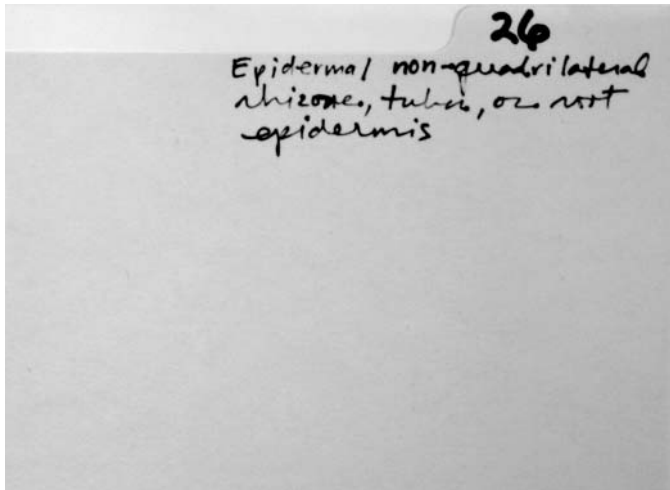 26
Epidermal non-quadrilateral
rhizome, tuber, or root
epidermis